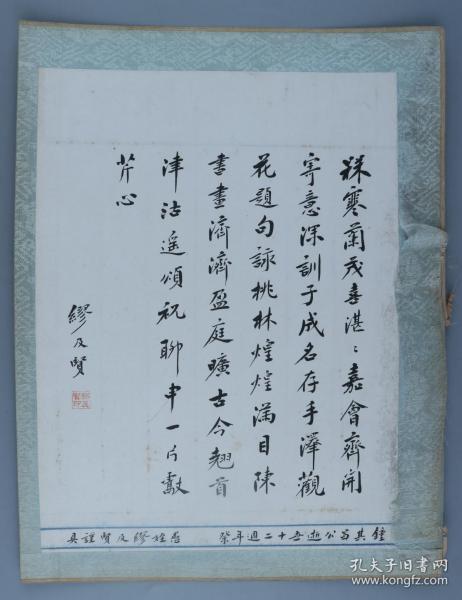 秣寒蘭茂喜湛〻嘉會齊開
寄意深訓子成名存手澤觀
花題句詠桃林煌煌滿目陳
書畫濟濟盈庭曠古今翹首
津沽遥頌祝聊申一片獻
芹心
繆及賢
鐘其昌公逝世十二週年祭
愚姪繆及賢謹具
孔夫子旧书网
kongfz.com